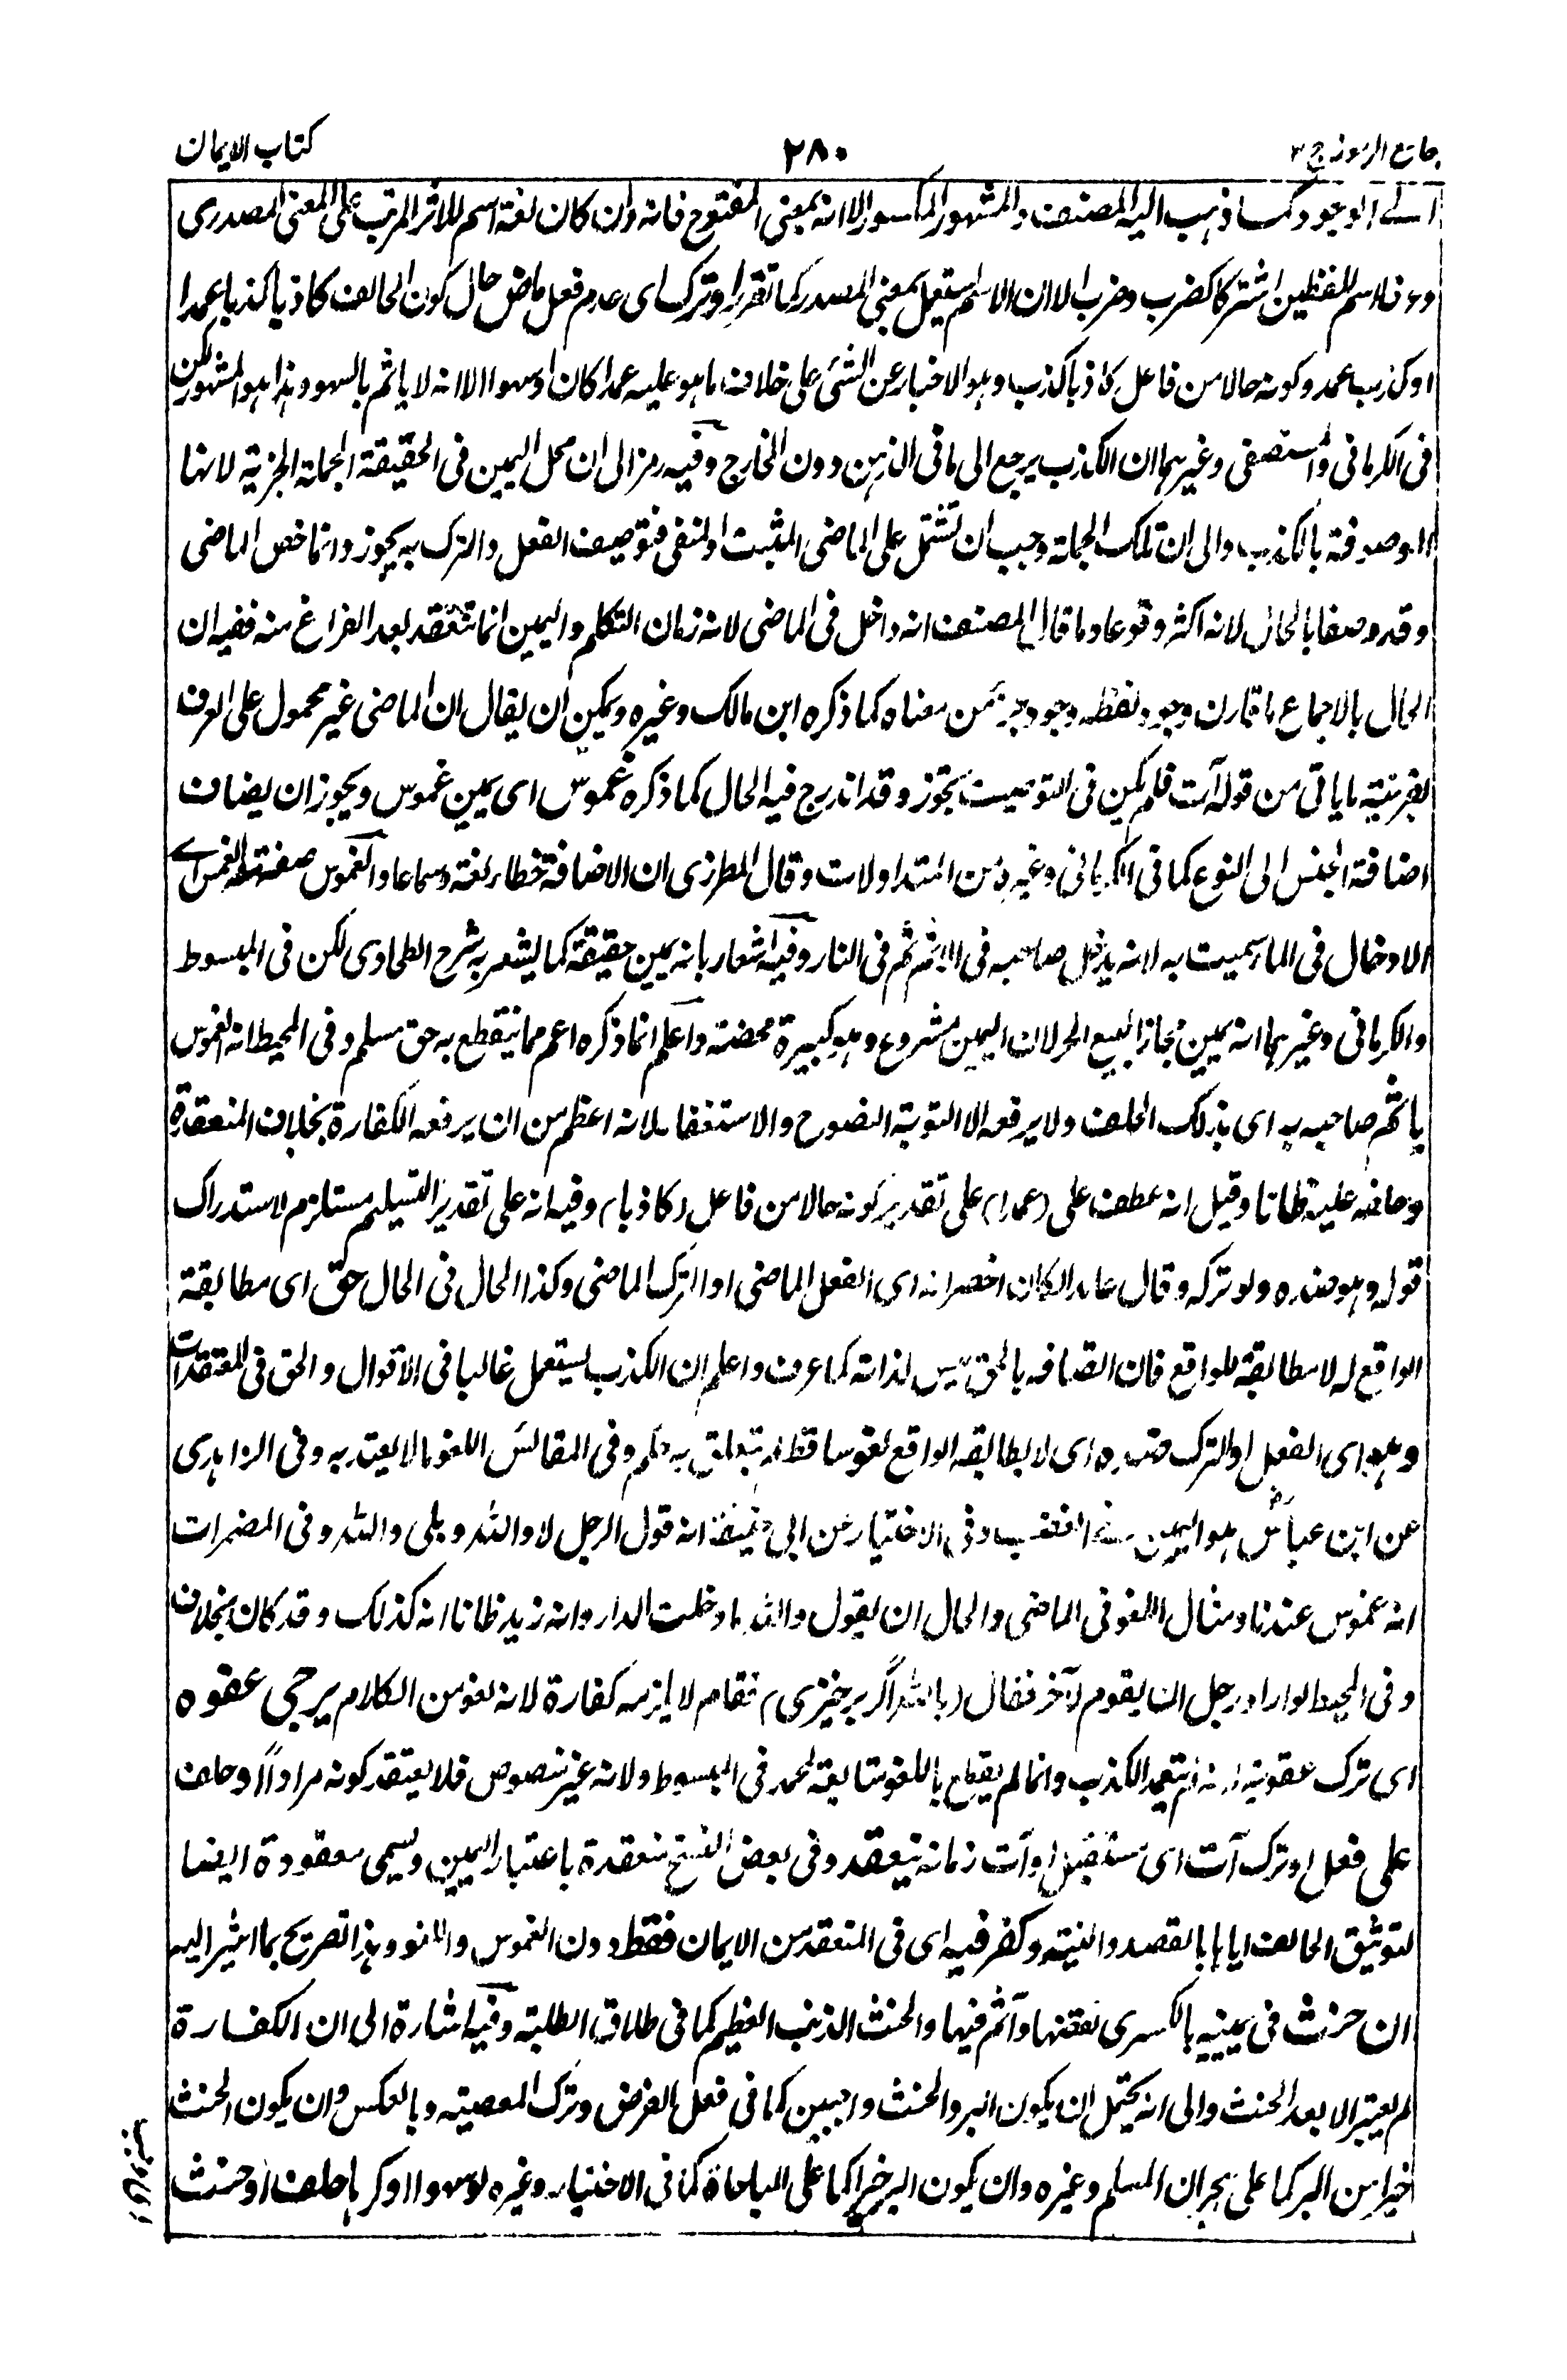 جامع الرموز ج ٣ ٢٨٠ كتاب الايمان
الوجود كما ذهب اليه المصنف والمشهور المكسور الا انه بمعنى المفتوح فانه وان كان لغة اسم للاثر المرتب على المعنى المصدرى
الاسم للفظين اشتركا كضرب وضرب الا ان الاسم يستعمل بمعنى المصدر كما تقرر او ترك اى عدم فعل ماض حال كون الحالف كاذبا كذبا عمدا
او كذب عمد وكونه حالا من فاعل كاذبا كذب وهو الاخبار عن الشئ على خلاف ما هو عليه عمدا كان او سهوا الا انه لا ياثم بالسهو وهذا هو المشهور لكن
فى الكرمانى والمستصفى وغيرهما ان الكذب يرجع الى ما فى الذهن دون الخارج وفيه رمز الى ان محل اليمين فى الحقيقة الجملة الجزئية لانها
الموصوفة بالكذب والى ان تلك الجملة وجب ان تشتمل على الماضى المثبت او المنفى فتوصيف الفعل والترك به يجوز وانما خص الماضى
وقد وصفا بالحال لانه اكثر وقوعا وما قال المصنف انه داخل فى الماضى لانه زمان التكلم واليمين انما تنعقد بعد الفراغ منه ففيه ان
الحال بالاجماع ما قارن وجود لفظه وجود جزء من معناه كما ذكره ابن مالك وغيره ويمكن ان يقال ان الماضى غير محمول على العرف
بقرينة ما ياتى من قوله آت فلم يكن فى التوصيف تجوز وقد اندرج فيه الحال كما ذكره غموس اى يمين غموس ويجوز ان يضاف
اضافة الجنس الى النوع كما فى الكرمانى وغيره من المتداولات وقال المطرزى ان الاضافة خطاء لغة وسماعا والغموس صفة من الغمس اے
الادخال فى الماء سميت به لانه يدخل صاحبه فى الاثم ثم فى النار وفيه اشعار بانه يمين حقيقة كما يشعر به شرح الطحاوى لكن فى المبسوط
والكرمانى وغيرهما انه يمين مجازا كبيع الحر لان اليمين مشروع وهو كبيرة محضة واعلم انما ذكره اعم مما ينقطع به حق مسلم وفى المحيط انه الغموس
ياثم صاحبه به اى بذلك الحلف ولا يرفعه الا التوبة النصوح والاستغفار لانه اعظم من ان يرفعه الكفارة بخلاف المنعقدة
وحلفه عليه ظانا وقيل انه عطف على (عمدا) على تقدير كونه حالا من فاعل (كاذبا) وفيه انه على تقدير التسليم مستلزم لاستدراك
قوله وهو ضده ولو تركه وقال ظانا لكان اخصر انه اى الفعل الماضى او الترك الماضى وكذا الحال فى الحال حق اى مطابقة
الواقع له لا مطابقة للواقع فان اتصافه بالحق ليس لذاته كما عرف واعلم ان الكذب يستعمل غالبا فى الاقوال والحق فى المعتقدات
وهو اى الفعل او الترك ضده اى لا يطابقه الواقع لغو ساقط لم يتعلق به حكم وفى المقائس اللغو ما لا يعتد به وفى الزاهدى
عن ابن عباس رض هو اليمين فى الغضب وفى الاختيار عن ابى حنيفة انه قول الرجل لا والله وبلى والله وفى المضمرات
انه غموس عندنا ومثال اللغو فى الماضى والحال ان يقول والله ما دخلت الدار وانه زيد ظانا انه كذلك وقد كان بخلاف
وفى المحيط لو اراد رجل ان يقوم لآخر فقال (بالله اگر برخيزى) فقام لا يلزمه كفارة لانه لغو من الكلام يرجى عفوه
اى ترك عقوبته لانه لم يتعمد الكذب وانما لم يقطع باللغو متابعة لمحمد فى المبسوط ولانه غير منصوص فلا يعتقد كونه مرادا او حلف
على فعل او ترك آت اى مستقبل او آت زمانه ينعقد وفى بعض النسخ منعقدة باعتبار اليمين ويسمى معقودة ايضا
لتوثيق الحالف اياها بالقصد والنية وكفر فيه اى فى المنعقد من الايمان فقط دون الغموس واللغو وهذا تصريح بما اشير اليه
ان حنث فى يمينه بالكسر نقضها وآثم فيها والحنث الذنب العظيم كما فى طلاق الطلبة وفيه اشارة الى ان الكفارة
لم يعتبر الا بعد الحنث والى انه يحتمل ان يكون البر والحنث واجبين كما فى فعل الفرض وترك المعصية وبالعكس وان يكون الحنث
خيرا من البر كما على هجران المسلم وغيره وان يكون البر خيرا كما على المباحاة كما فى الاختيار وغيره لو سهوا او كرها حلف او حنث